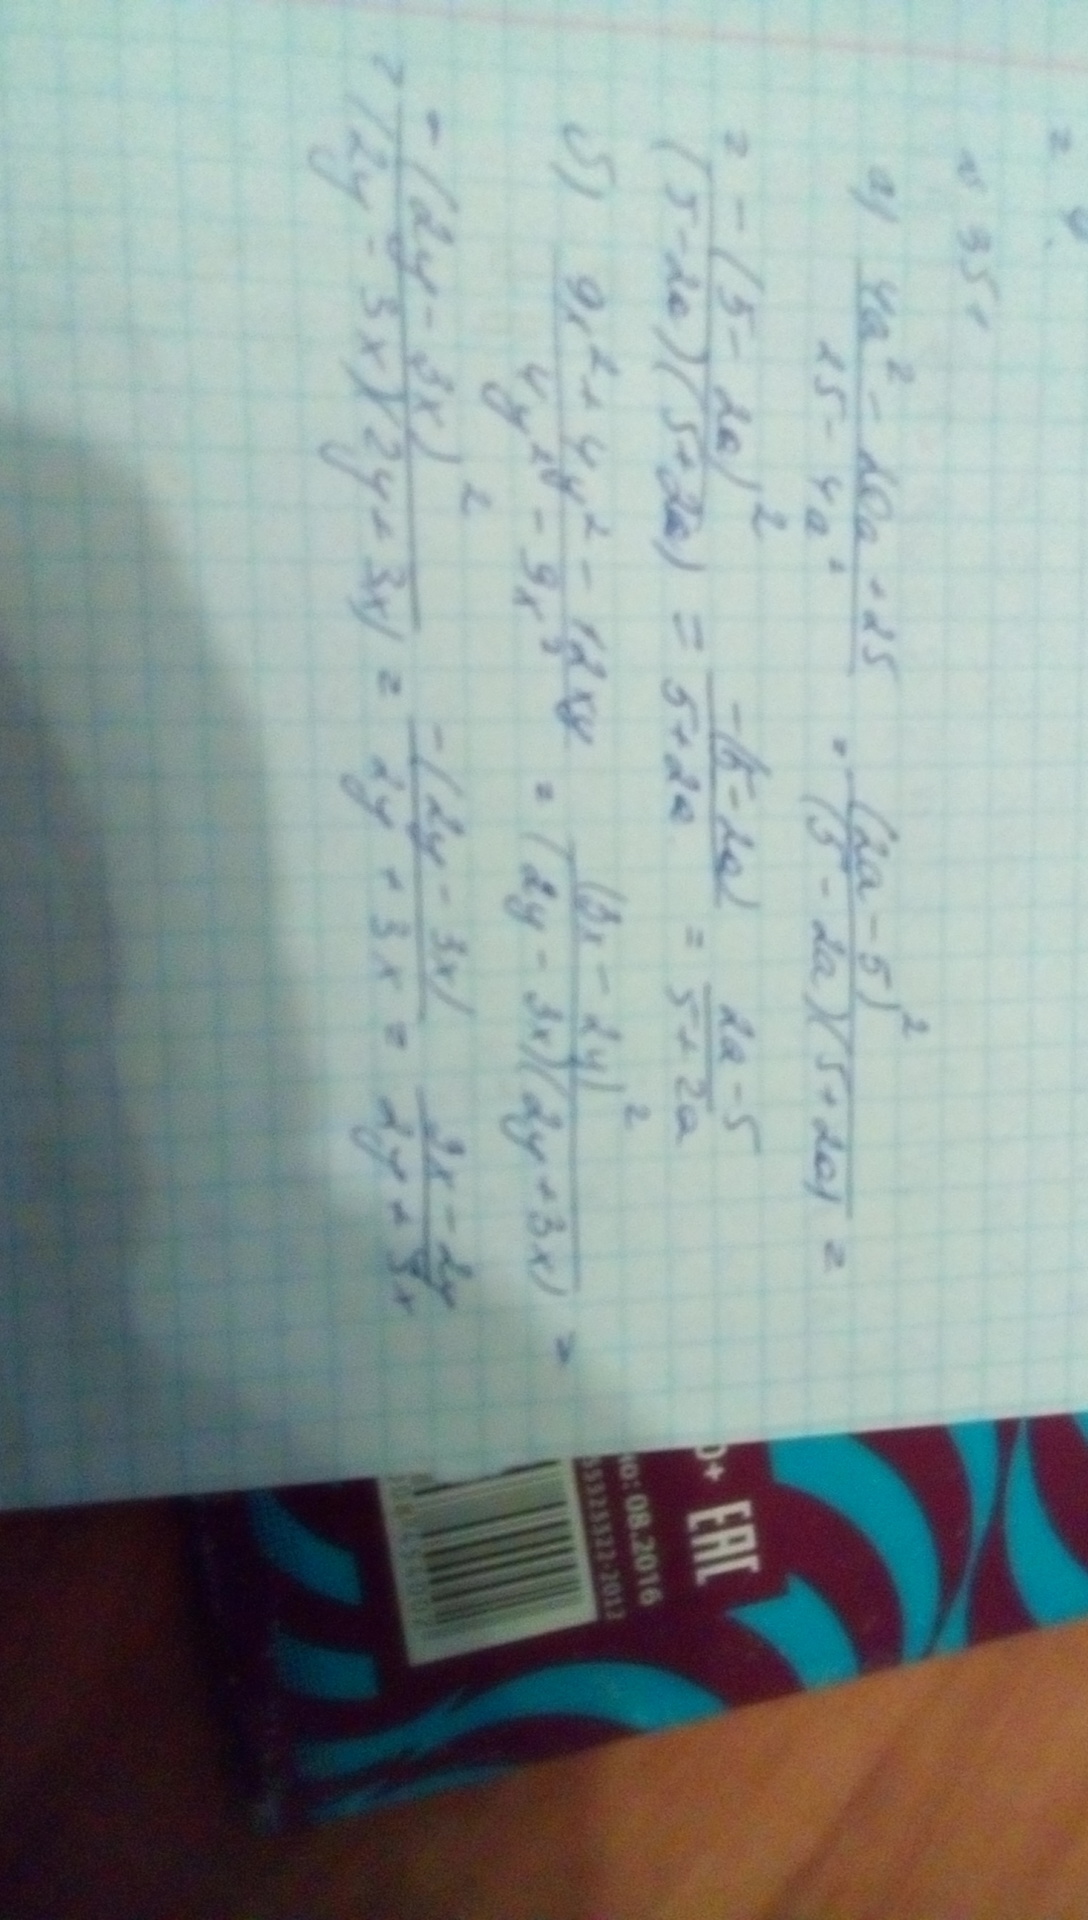 № 351
а) (4a² - 20a + 25)/(25 - 4a²) = (2a - 5)²/((5 - 2a)(5 + 2a)) =
= -(5 - 2a)²/((5 - 2a)(5 + 2a)) = -(5 - 2a)/(5 + 2a) = (2a - 5)/(5 + 2a)
б) (9x² + 4y² - 12xy)/(4y² - 9x²) = (3x - 2y)²/((2y - 3x)(2y + 3x)) =
= -(2y - 3x)²/((2y - 3x)(2y + 3x)) = -(2y - 3x)/(2y + 3x) = (3x - 2y)/(2y + 3x)
0+ EAC
08.2016